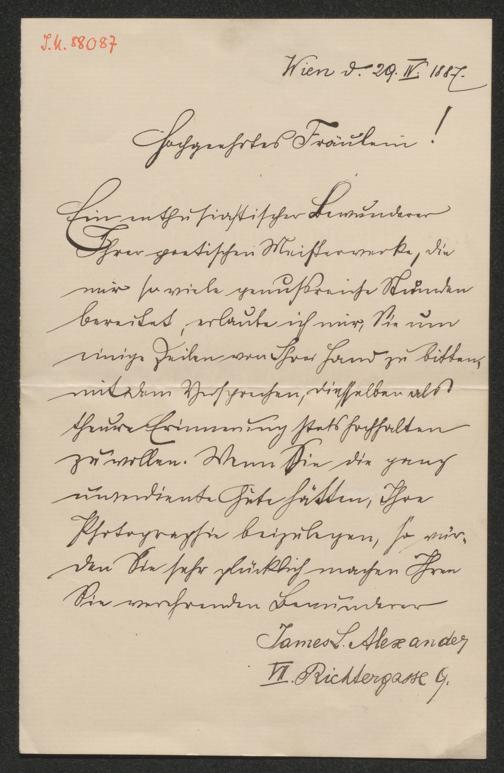 J.N. 58087
Wien d. 29. IV. 1887.
Hochgeehrtes Fräulein!
Ein enthusiastischer Bewunderer
Ihrer poetischen Meisterwerke, die
mir so viele genußreiche Stunden
bereitet, erlaube ich mir, Sie um
einige Zeilen von Ihrer Hand zu bitten,
mit dem Versprechen, dieselben als
theure Erinnerung stets hochhalten
zu wollen. Wenn Sie die ganz
unverdiente Güte hätten, Ihre
Photographie beizulegen, so wür-
den Sie sehr glücklich machen Ihren
Sie verehrenden Bewunderer
James L. Alexander
VII. Richtergasse 9.